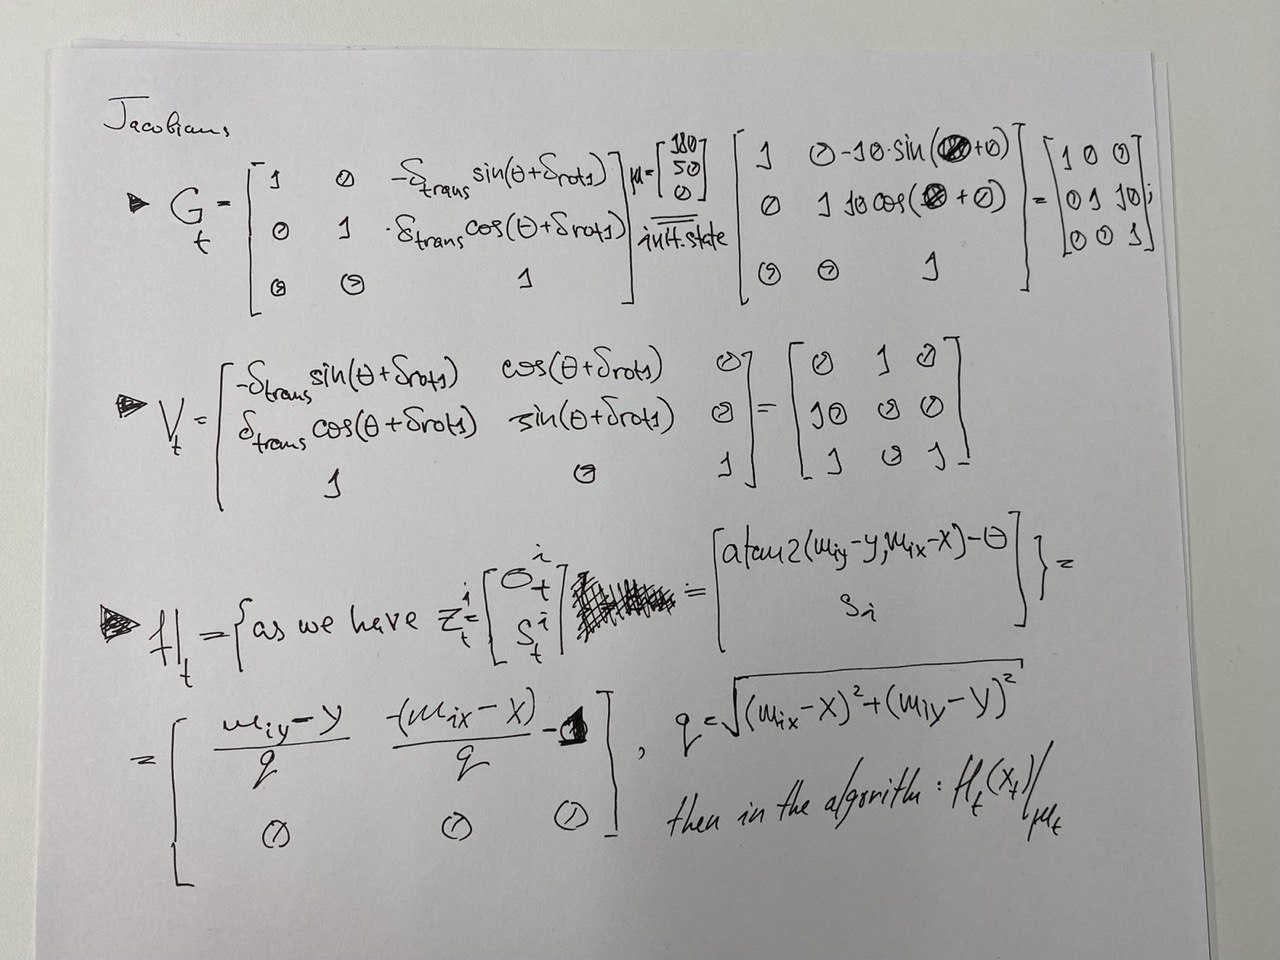 Jacobians
▶ G_t = [1 0 -δ_trans sin(θ+δ_rot1); 0 1 ·δ_trans cos(θ+δ_rot1); 0 0 1] μ=[180; 50; 0] init.state [1 0 -10·sin(0+0); 0 1 10 cos(0+0); 0 0 1] = [1 0 0; 0 1 10; 0 0 1];
▶ V_t = [-δ_trans sin(θ+δ_rot1) cos(θ+δ_rot1) 0; δ_trans cos(θ+δ_rot1) sin(θ+δ_rot1) 0; 1 0 1] = [0 1 0; 10 0 0; 1 0 1]
▶ H_t = {as we have z_t^i = [σ_t^i; s_t^i] = [atan2(m_iy-y, m_ix-x)-θ; s_i]} =
= [(m_iy-y)/q -(m_ix-x)/q -1; 0 0 0], q = √((m_ix-x)²+(m_iy-y)²)
then in the algorithm: H_t(x_t)|μ_t